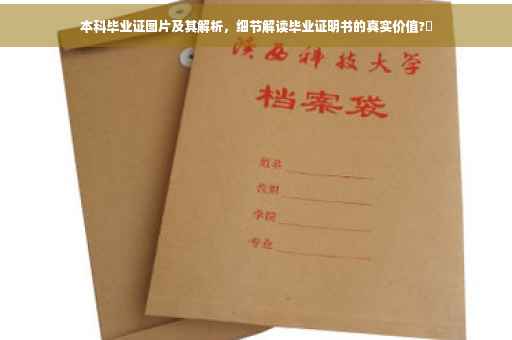 本科毕业证图片及其解析，细节解读毕业证明书的真实价值?
陕西科技大学
档案袋
姓名
学院
专业